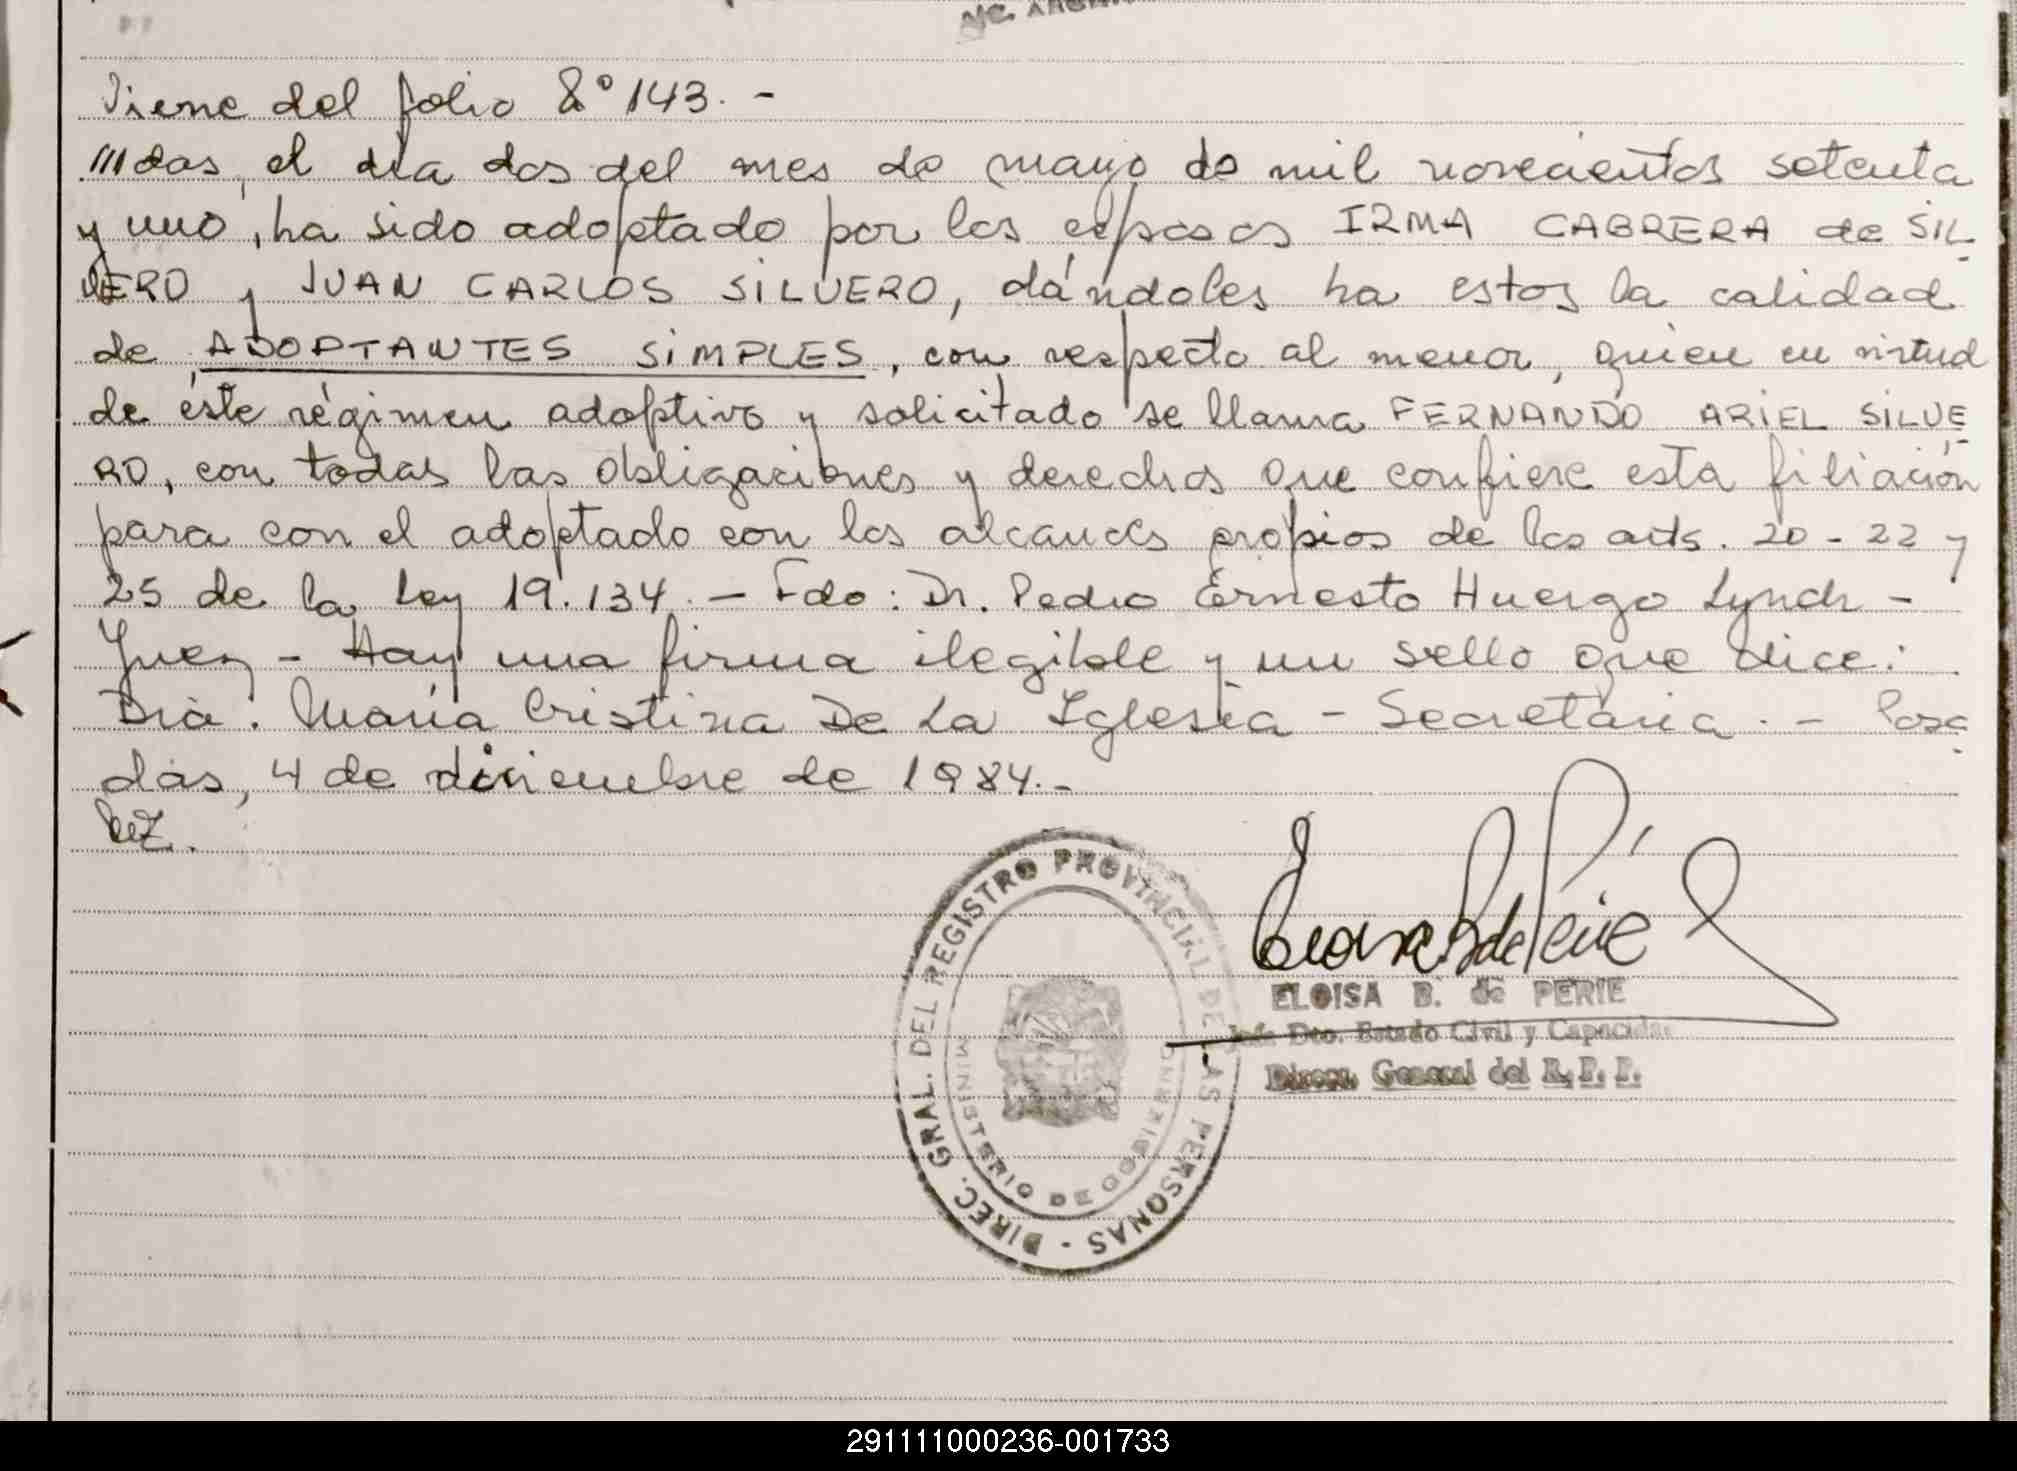 Viene del folio 2º 143. -
///das, el día dos del mes de mayo de mil novecientos setenta
y uno, ha sido adoptado por los esposos IRMA CABRERA de SIL-
VERO y JUAN CARLOS SILVERO, dándoles ha estos la calidad
de ADOPTANTES SIMPLES, con respecto al menor, quien en virtud
de éste régimen adoptivo y solicitado se llama FERNANDO ARIEL SILVE-
RO, con todas las obligaciones y derechos que confiere esta filiación
para con el adoptado con los alcances propios de los arts. 20 - 22 y
25 de la Ley 19.134. - Fdo: Dr. Pedro Ernesto Huergo Lynch -
Juez - Hay una firma ilegible y un sello que dice:
Dra. María Cristina De La Iglesia - Secretaria. - Posa-
das, 4 de diciembre de 1984.-
DIREC. GRAL. DEL REGISTRO PROVINCIAL DE LAS PERSONAS -
MINISTERIO DE GOBIERNO
ELOISA B. de PERIE
Jefe Dto. Estado Civil y Capacidad
Direcc. General del R. P. P.
291111000236-001733